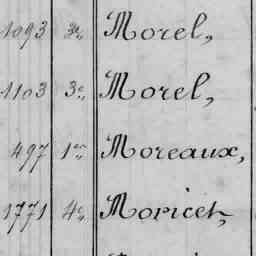 1093 3e Morel,
1103 3e Morel,
497 1er Moreaux,
1771 4e Moricet,